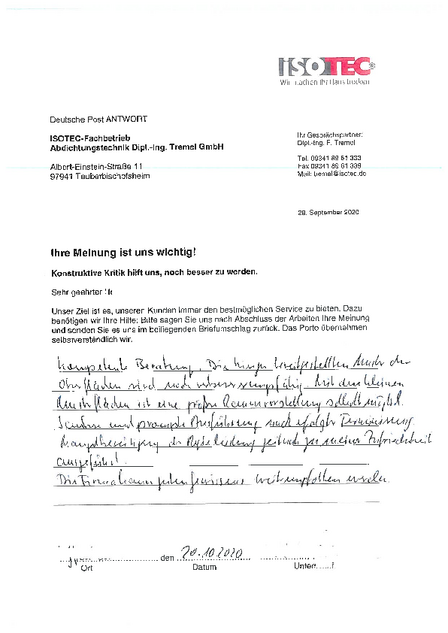 ISOTEC®
Wir machen Ihr Haus trocken
Deutsche Post ANTWORT
ISOTEC-Fachbetrieb
Abdichtungstechnik Dipl.-Ing. Tremel GmbH
Albert-Einstein-Straße 11
97941 Tauberbischofsheim
Ihr Gesprächspartner:
Dipl.-Ing. F. Tremel
Tel. 09341 89 61 333
Fax 09341 89 61 339
Mail: tremel@isotec.de
28. September 2020
Ihre Meinung ist uns wichtig!
Konstruktive Kritik hilft uns, noch besser zu werden.
Sehr geehrter
Unser Ziel ist es, unseren Kunden immer den bestmöglichen Service zu bieten. Dazu
benötigen wir Ihre Hilfe: Bitte sagen Sie uns nach Abschluss der Arbeiten Ihre Meinung
und senden Sie es uns im beiliegenden Briefumschlag zurück. Das Porto übernehmen
selbstverständlich wir.
Kompetente Beratung. Die
Oberflächen sind noch Mit den kleinen
ist eine große
Saubere und prompte Ausführung nach erfolgter
zu meiner Zufriedenheit
ausgeführt.
Die Firma kann guten Gewissens weiterempfohlen werden.
den 20.10.2020
Ort Datum Unter